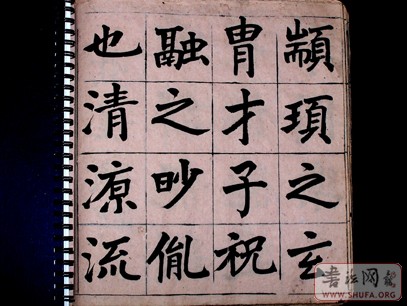 顓頊之玄
胄才子祝
融之眇胤
也清源流
WWW.SHUFA.ORG